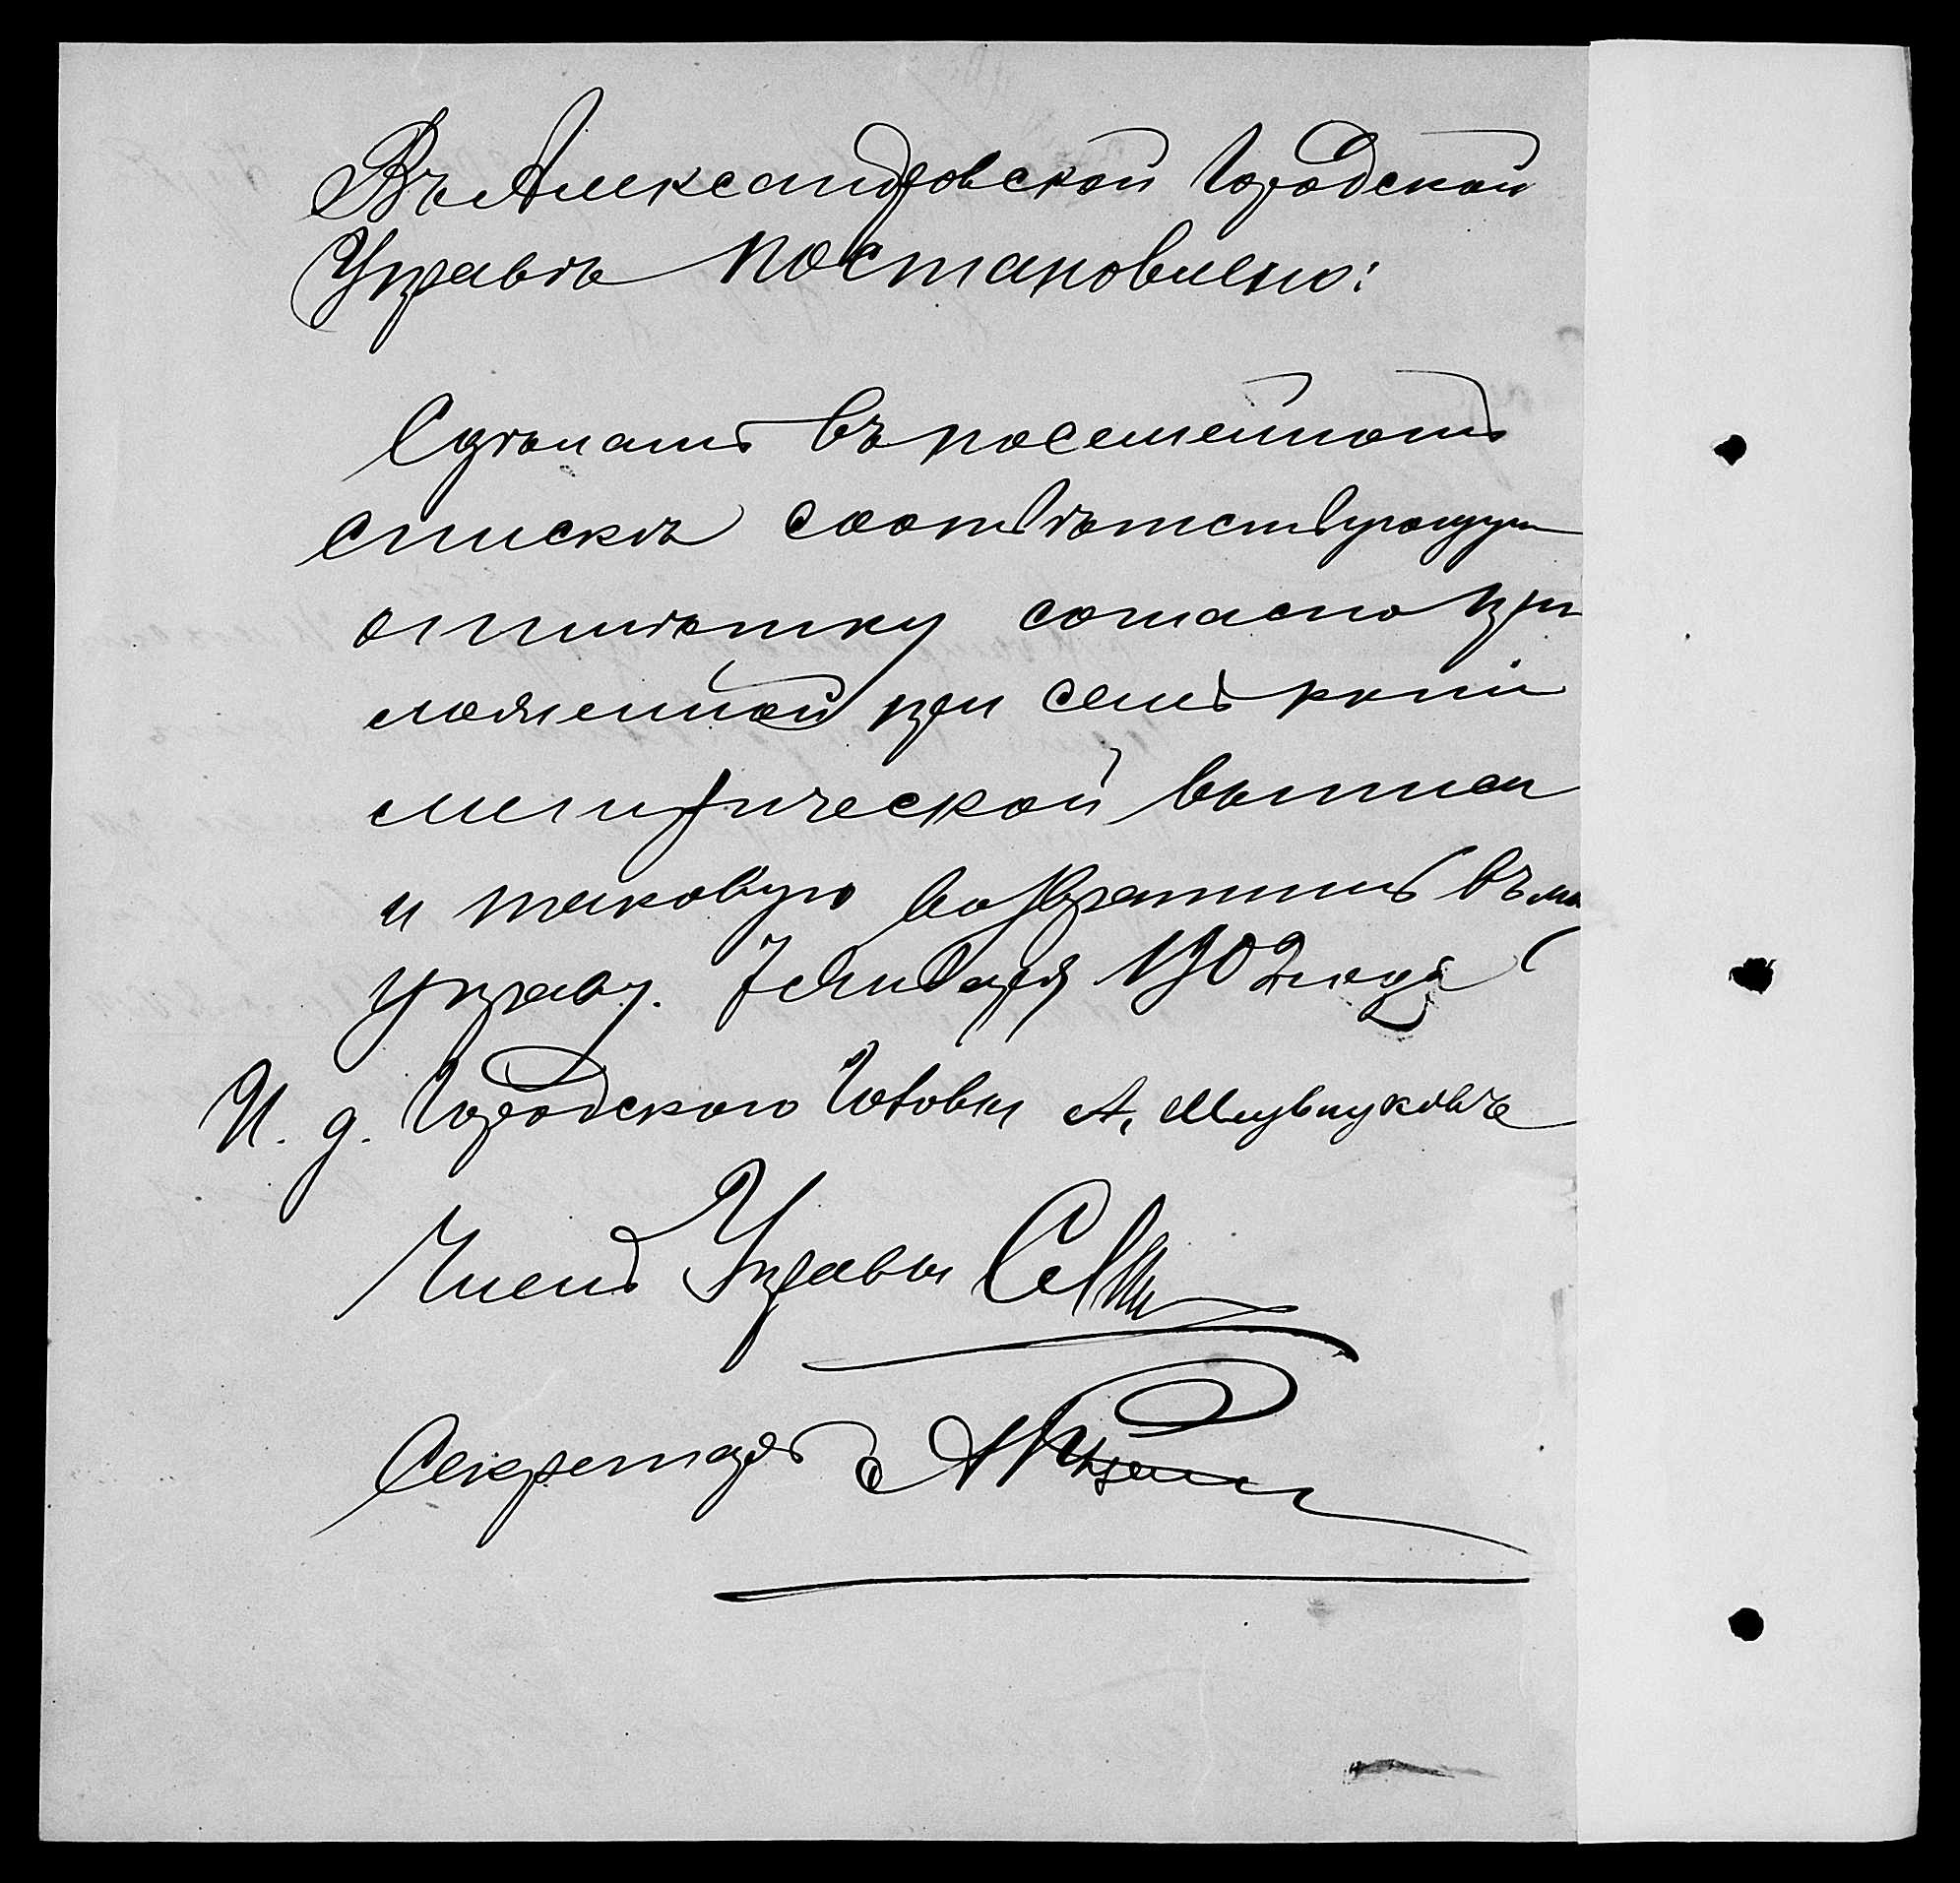 Въ Александровской Городской
Управѣ постановлено:
Сдѣлать въ посемейномъ
спискѣ соотвѣтствующую
отмѣтку согласно при
ложенной при семъ копіи
метрической выписи
и таковую возвратить въ
управу. Января 1902 года
И. д. Городского Головы А.
Членъ Управы
Секретарь